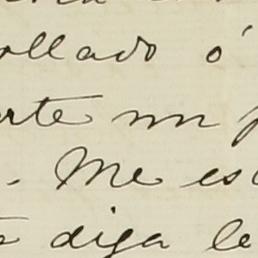 ollado ó
rte un p
. Me es
diga le